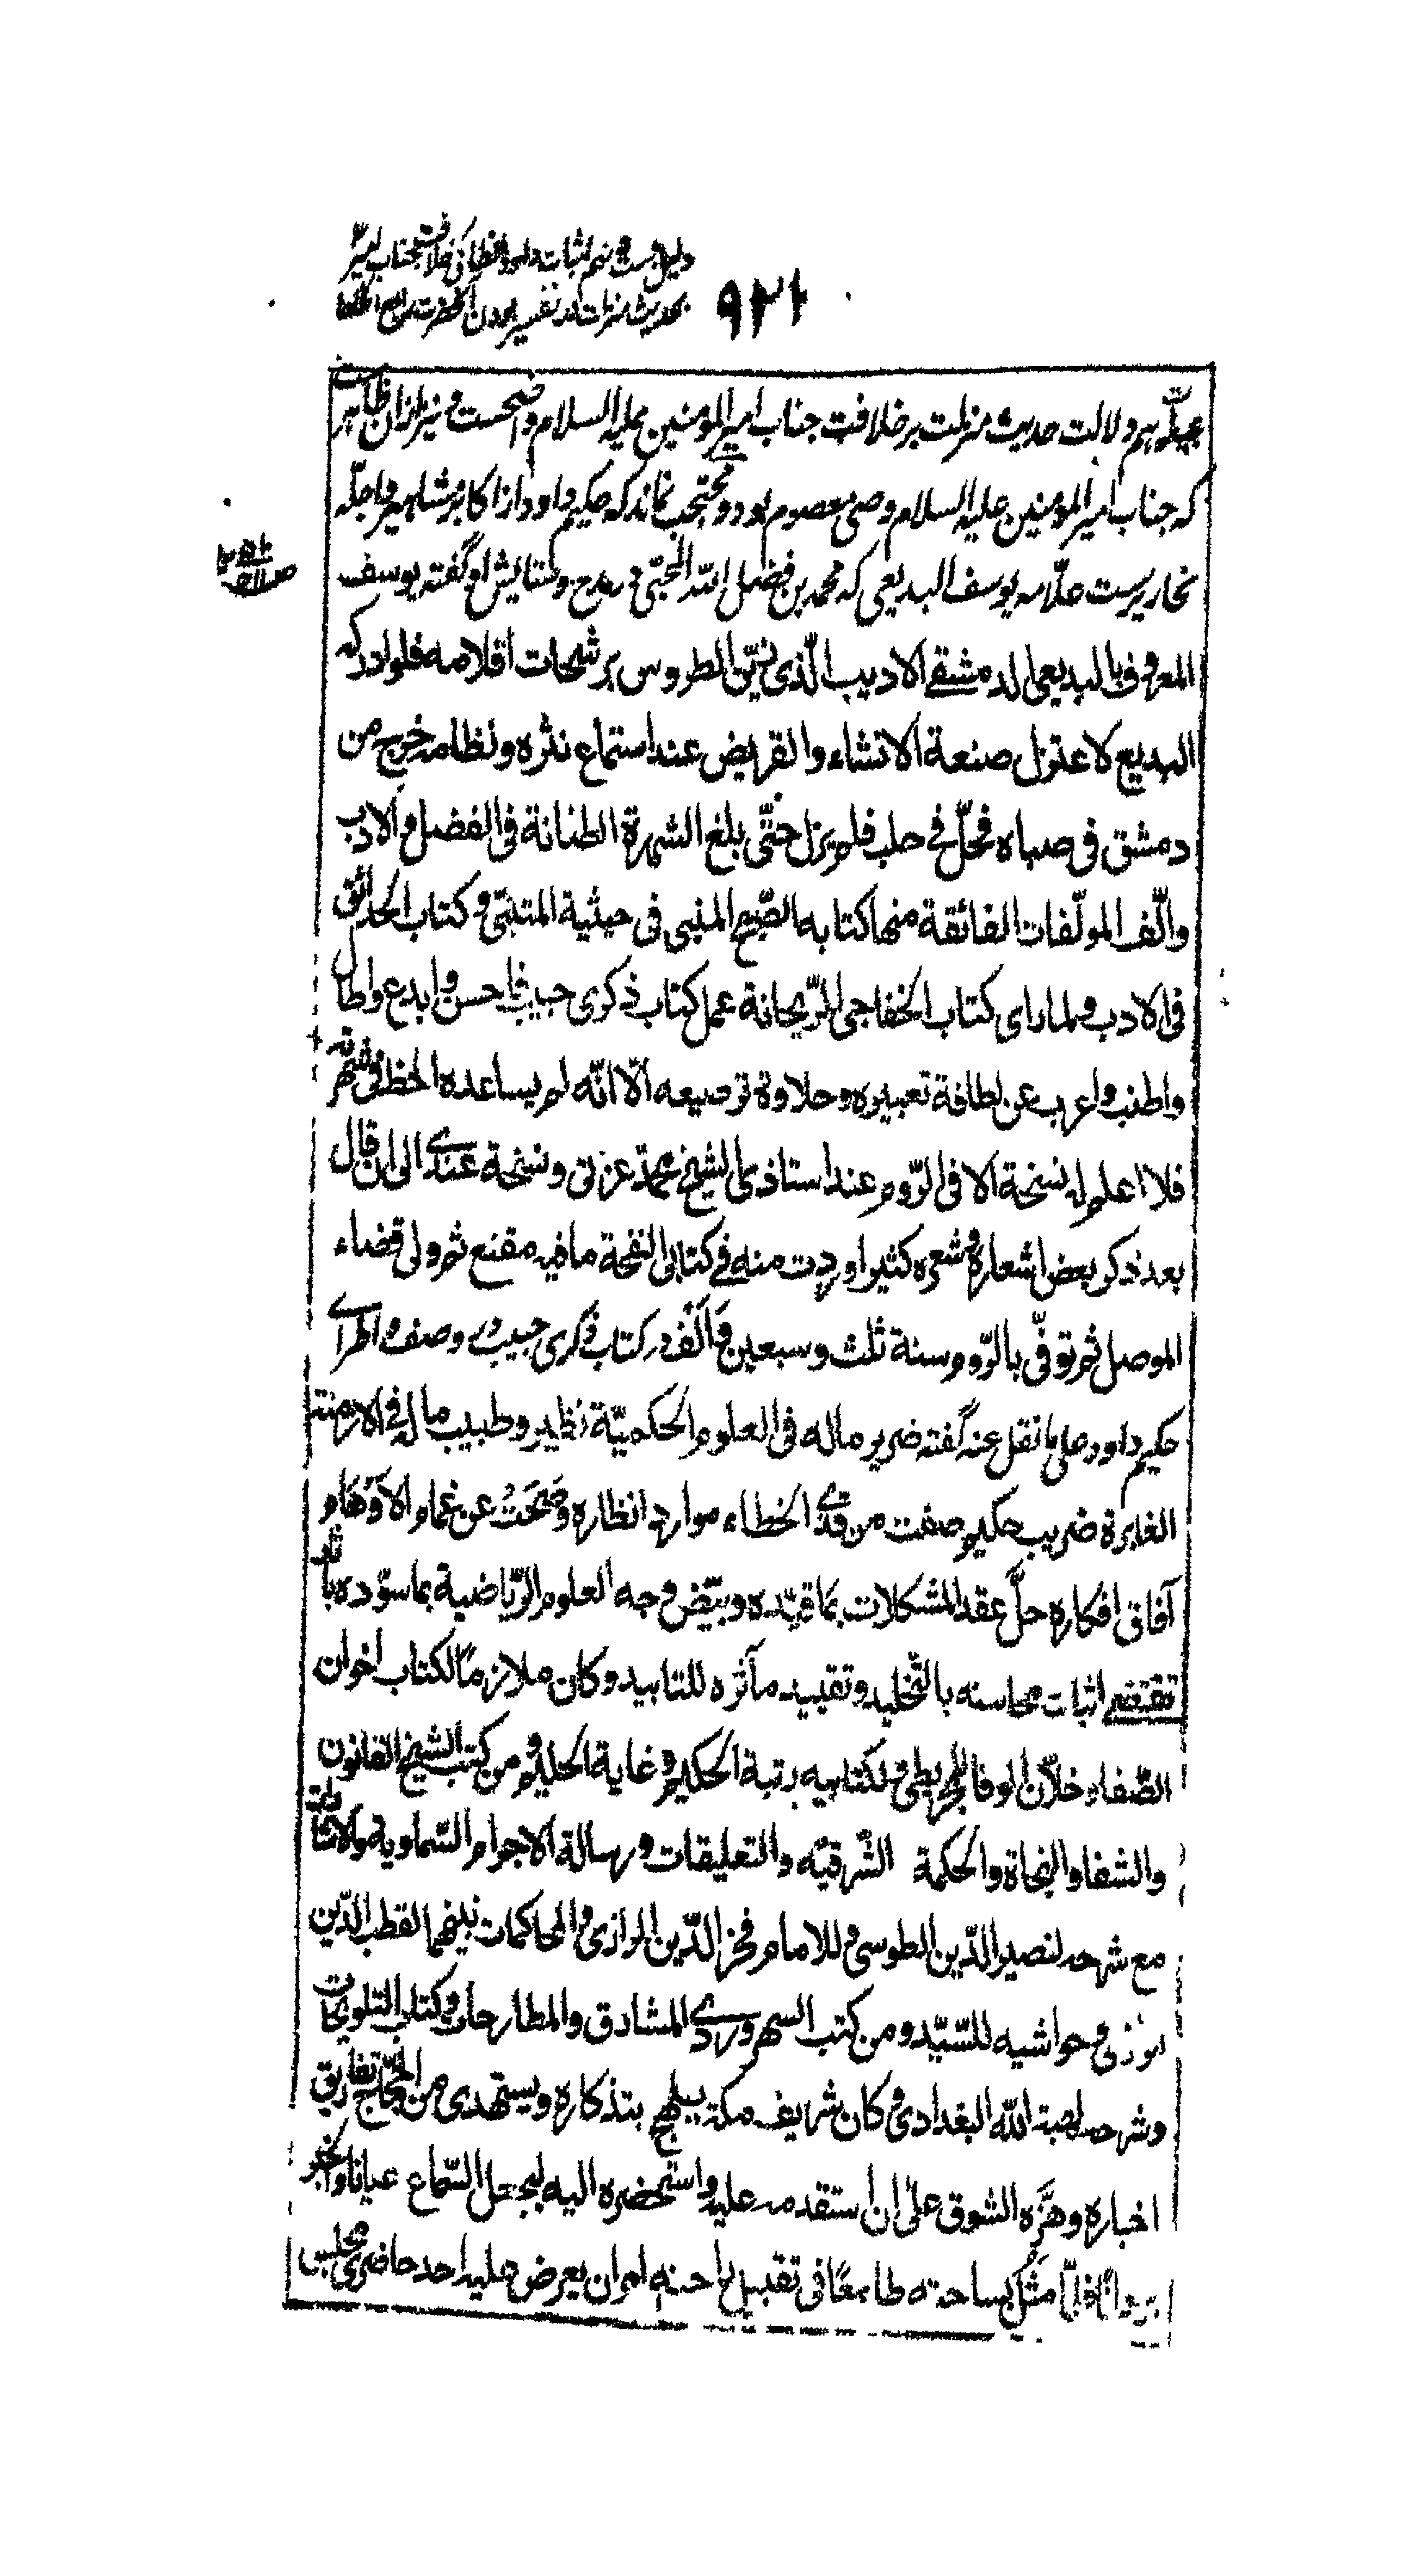 دلیل بست و نهم اثبات داود انطاکی خلافت جناب امیر
بحدیث منزلت
۹۲۱
عجله بهم دلالت حدیث منزلت بر خلافت جناب امیر المومنین علیه السلام واضحست و نیز ازان ظاهرست
که جناب امیر المومنین علیه السلام وصی معصوم بود و محتجب نماند که حکیم داود از اکابر مشاهیر و اجلّه
نحاریرست علّامه یوسف البدیعی که محمد بن فضل اللّه المحبّی در مدح و ستایش او گفته یوسف
المعروف بالبدیعی الدمشقے الادیب الّذی زیّن الطروس برشحات اقلامه فلو ادرکه
البدیع لاعتزل صنعة الانشاء والقریض عند استماع نثره ونظامه خرج من
دمشق فی صباه فحلّ فے حلب فلم یزل حتّی بلغ الشهرة الطنانة فی الفضل والادب
والّف المولّفات الفائقة منها کتابه الصّبح المنبی فی حیثیة المتنبّی وکتاب الحدائق
فی الادب ولما رای کتاب الخفاجی الرّیحانة عمل کتاب ذکری حبیب فاحسن وابدع واطال
واطنب واعرب عن لطافة تعبیره وحلاوة ترصیعه الّا انّه لم یساعده الحظ فی شهرته
فلا اعلم له نسخة الا فی الرّوم عند استاذی الشیخ محمّد عزتی ونسخة عندے الی ان قال
بعد ذکر بعض اشعاره وشعره کثیر اوردت منه فے کتابی النفحة ما فیه مقنع ثم ولی قضاء
الموصل ثم توفّی بالرّوم سنة ثلث وسبعین والف در کتاب ذکری حبیب در وصف و اطراے
حکیم داود علی ما نقل عنه گفته ضریر ماله فی العلوم الحکمیّة نظیر وطبیب ماله فے الازمنة
الغابرة ضریب حکیم صفت من قذے الخطاء موارد انظاره وصَحَتْ عن غمام الاَوْهَام
آفاق افکاره حلّ عقد المشکلات بما قیّده وبیّض وجه العلوم الرّیاضیة بما سوّده بآثار
تقتضے اثبات محاسنه بالتّخلید وتقیید مآثره للتابید وکان ملازمًا لکتاب اخوان
الصّفاء وخلّان الوفا للمجریطی ولکتابیه رتبة الحکیم وغایة الحکیم ومن کتب الشیخ القانون
والشفا والنجاة والحکمة الشّرقیّه والتعلیقات ورسالة الاجرام السّماویة والاشارات
مع شرحه لنصیر الدّین الطوسی وللامام فخر الدّین الرازی والمحاکمات بینهما لقطب الدّین
وحواشیه للسّیّد ومن کتب السهروردے المشارق والمطارحات وکتاب التلویحات
وشرحه لهبة اللّه البغدادی وکان شریف مکة یلهج بتذکاره ویستهدی من الحجّاج تفاریق
اخباره وهزّه الشوق علی ان استقدمه علیه واستحضره الیه لیجعل السّماع عیانا والخبر
فلمّا مثُل بساحته طامعًا فی تقبیل راحته امر ان یعرض علیه احد حاضری مجلسه